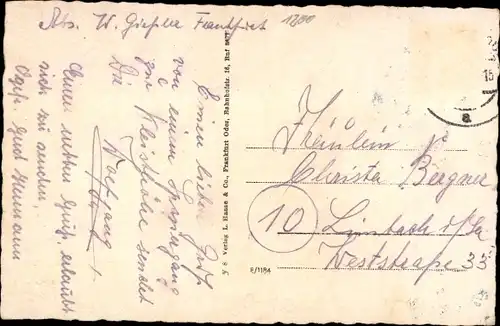 Abs. W. Giehler Frankfurt
1200
Einen lieben Gruß
von einem Spaziergang
zur Kleisthöhe sendet
Dir
Wolfgang
Einen netten Gruß, erlaubt
sich zu senden
Hermann
№ 8 Verlag L. Haase & Co., Frankfurt Oder, Bahnhofstr. 16, Ruf
P/1184
15
a
Fräulein
Christa Bergner
10 Limbach i/Sa
Weststraße 33